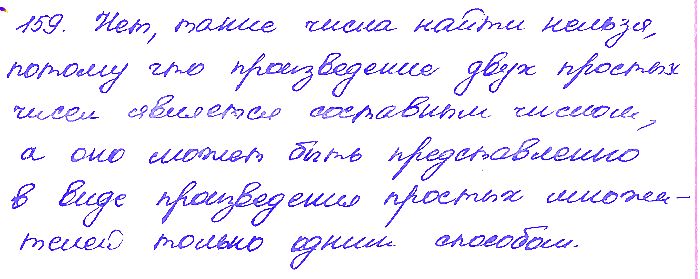 159. Нет, такие числа найти нельзя,
потому что произведение двух простых
чисел является составным числом,
а оно может быть представленно
в виде произведения простых множи-
телей только одним способом.